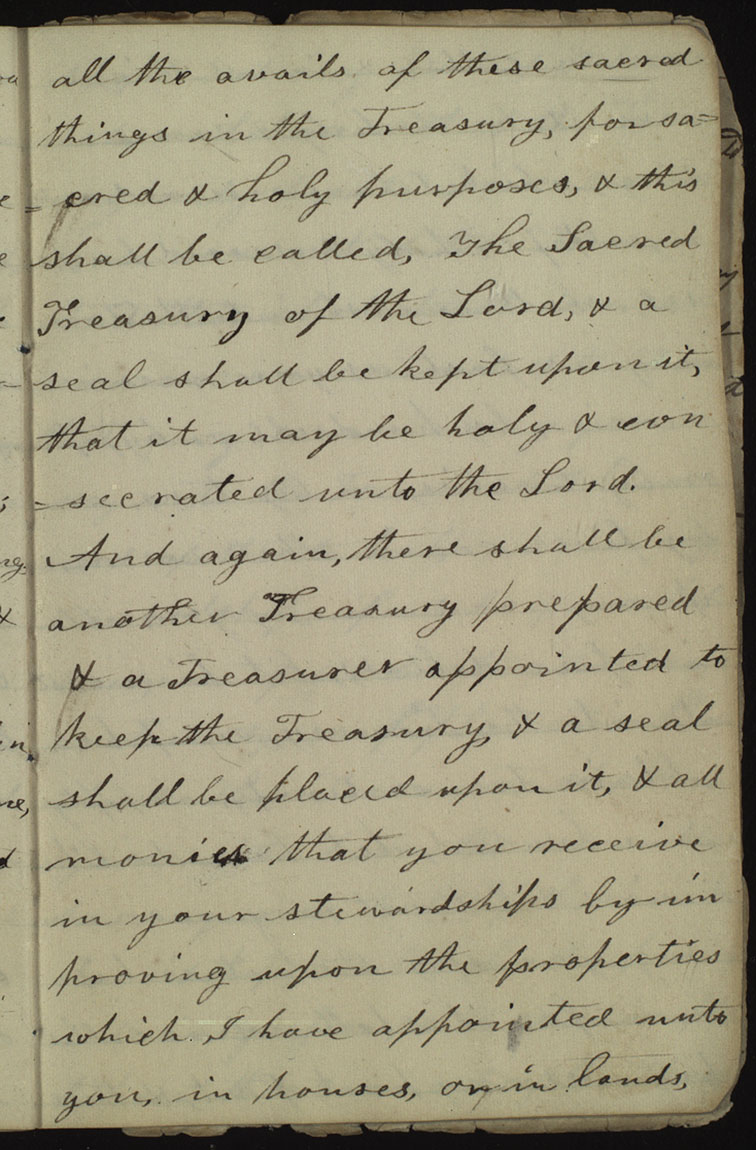 all the avails of these sacred
things in the Treasury, for sa=
cred & holy purposes, & this
shall be called, The Sacred
Treasury of the Lord, & a
seal shall be kept upon it,
that it may be holy & con
=secrated unto the Lord.
And again, there shall be
another Treasury prepared
& a Treasurer appointed to
keep the Treasury, & a seal
shall be placed upon it, & all
monies that you receive
in your stewardships by im
proving upon the properties
which I have appointed unto
you, in houses, or in lands,